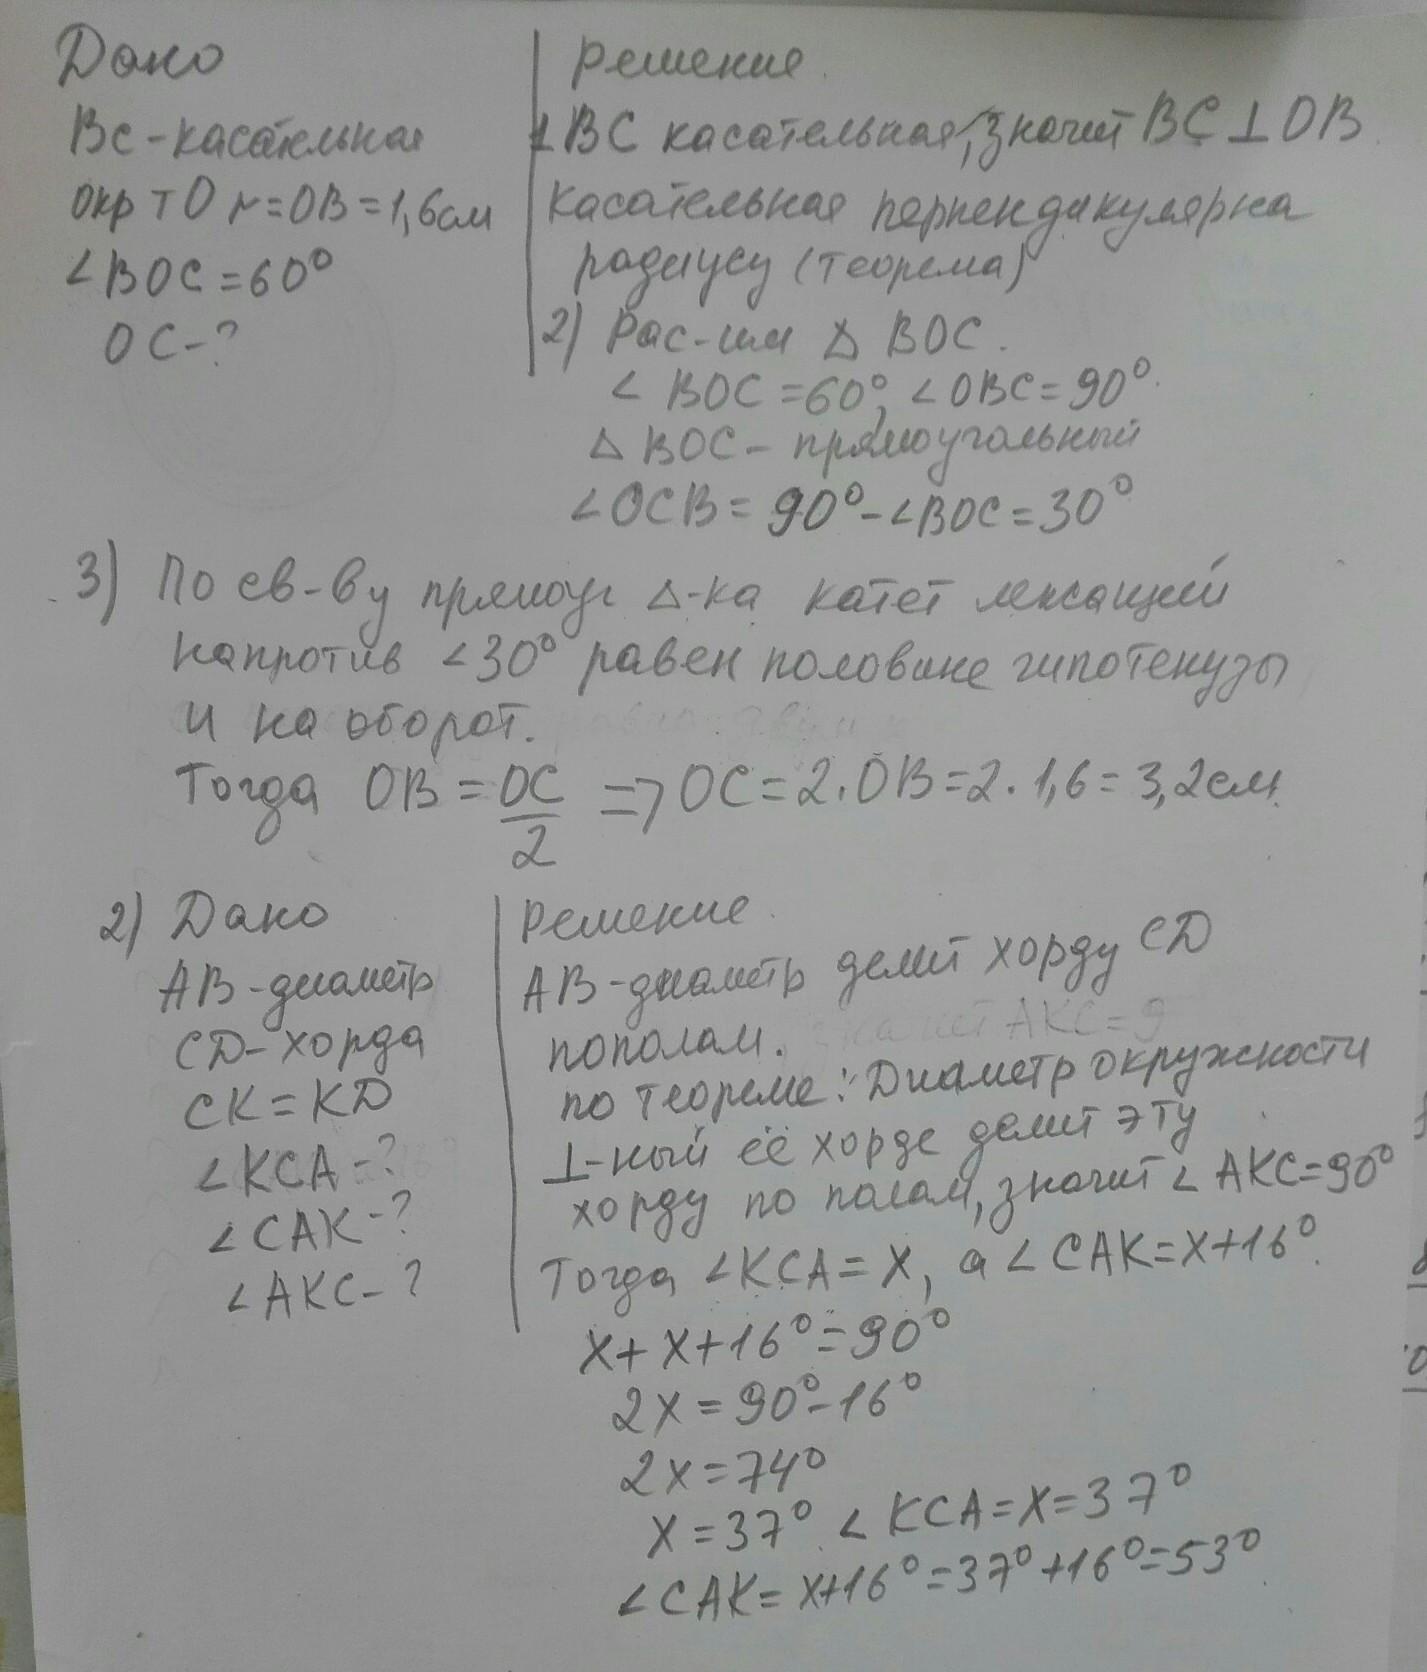 Дано
Вс-касательная
окр т О r=ОВ=1,6см
∠ВОС=60°
ОС-?
Решение
1 ВС касательная, значит ВС⊥ОВ
касательная перпендикулярна
радиусу (теорема)
2) Рас-им △ ВОС.
∠ ВОС=60°, ∠ОВС=90°
△ ВОС- прямоугольный
∠ОСВ= 90°-∠ВОС=30°
3) По св-ву прямоуг △-ка катет лежащий
напротив ∠30° равен половине гипотенузы
и на оборот.
Тогда ОВ=ОС/2 => ОС=2·ОВ=2·1,6=3,2см
2) Дано
АВ-диаметр
СD-хорда
СК=КD
∠КСА-?
∠САК-?
∠АКС-?
Решение
АВ-диаметр делит хорду СD
пополам.
по теореме: Диаметр окружности
⊥-ный её хорде делит эту
хорду по полам, значит ∠ АКС=90°
Тогда ∠КСА=Х, а ∠САК=Х+16°
Х+Х+16°=90°
2Х=90°-16°
2Х=74°
Х=37° ∠КСА=Х=37°
∠САК=Х+16°=37°+16°=53°